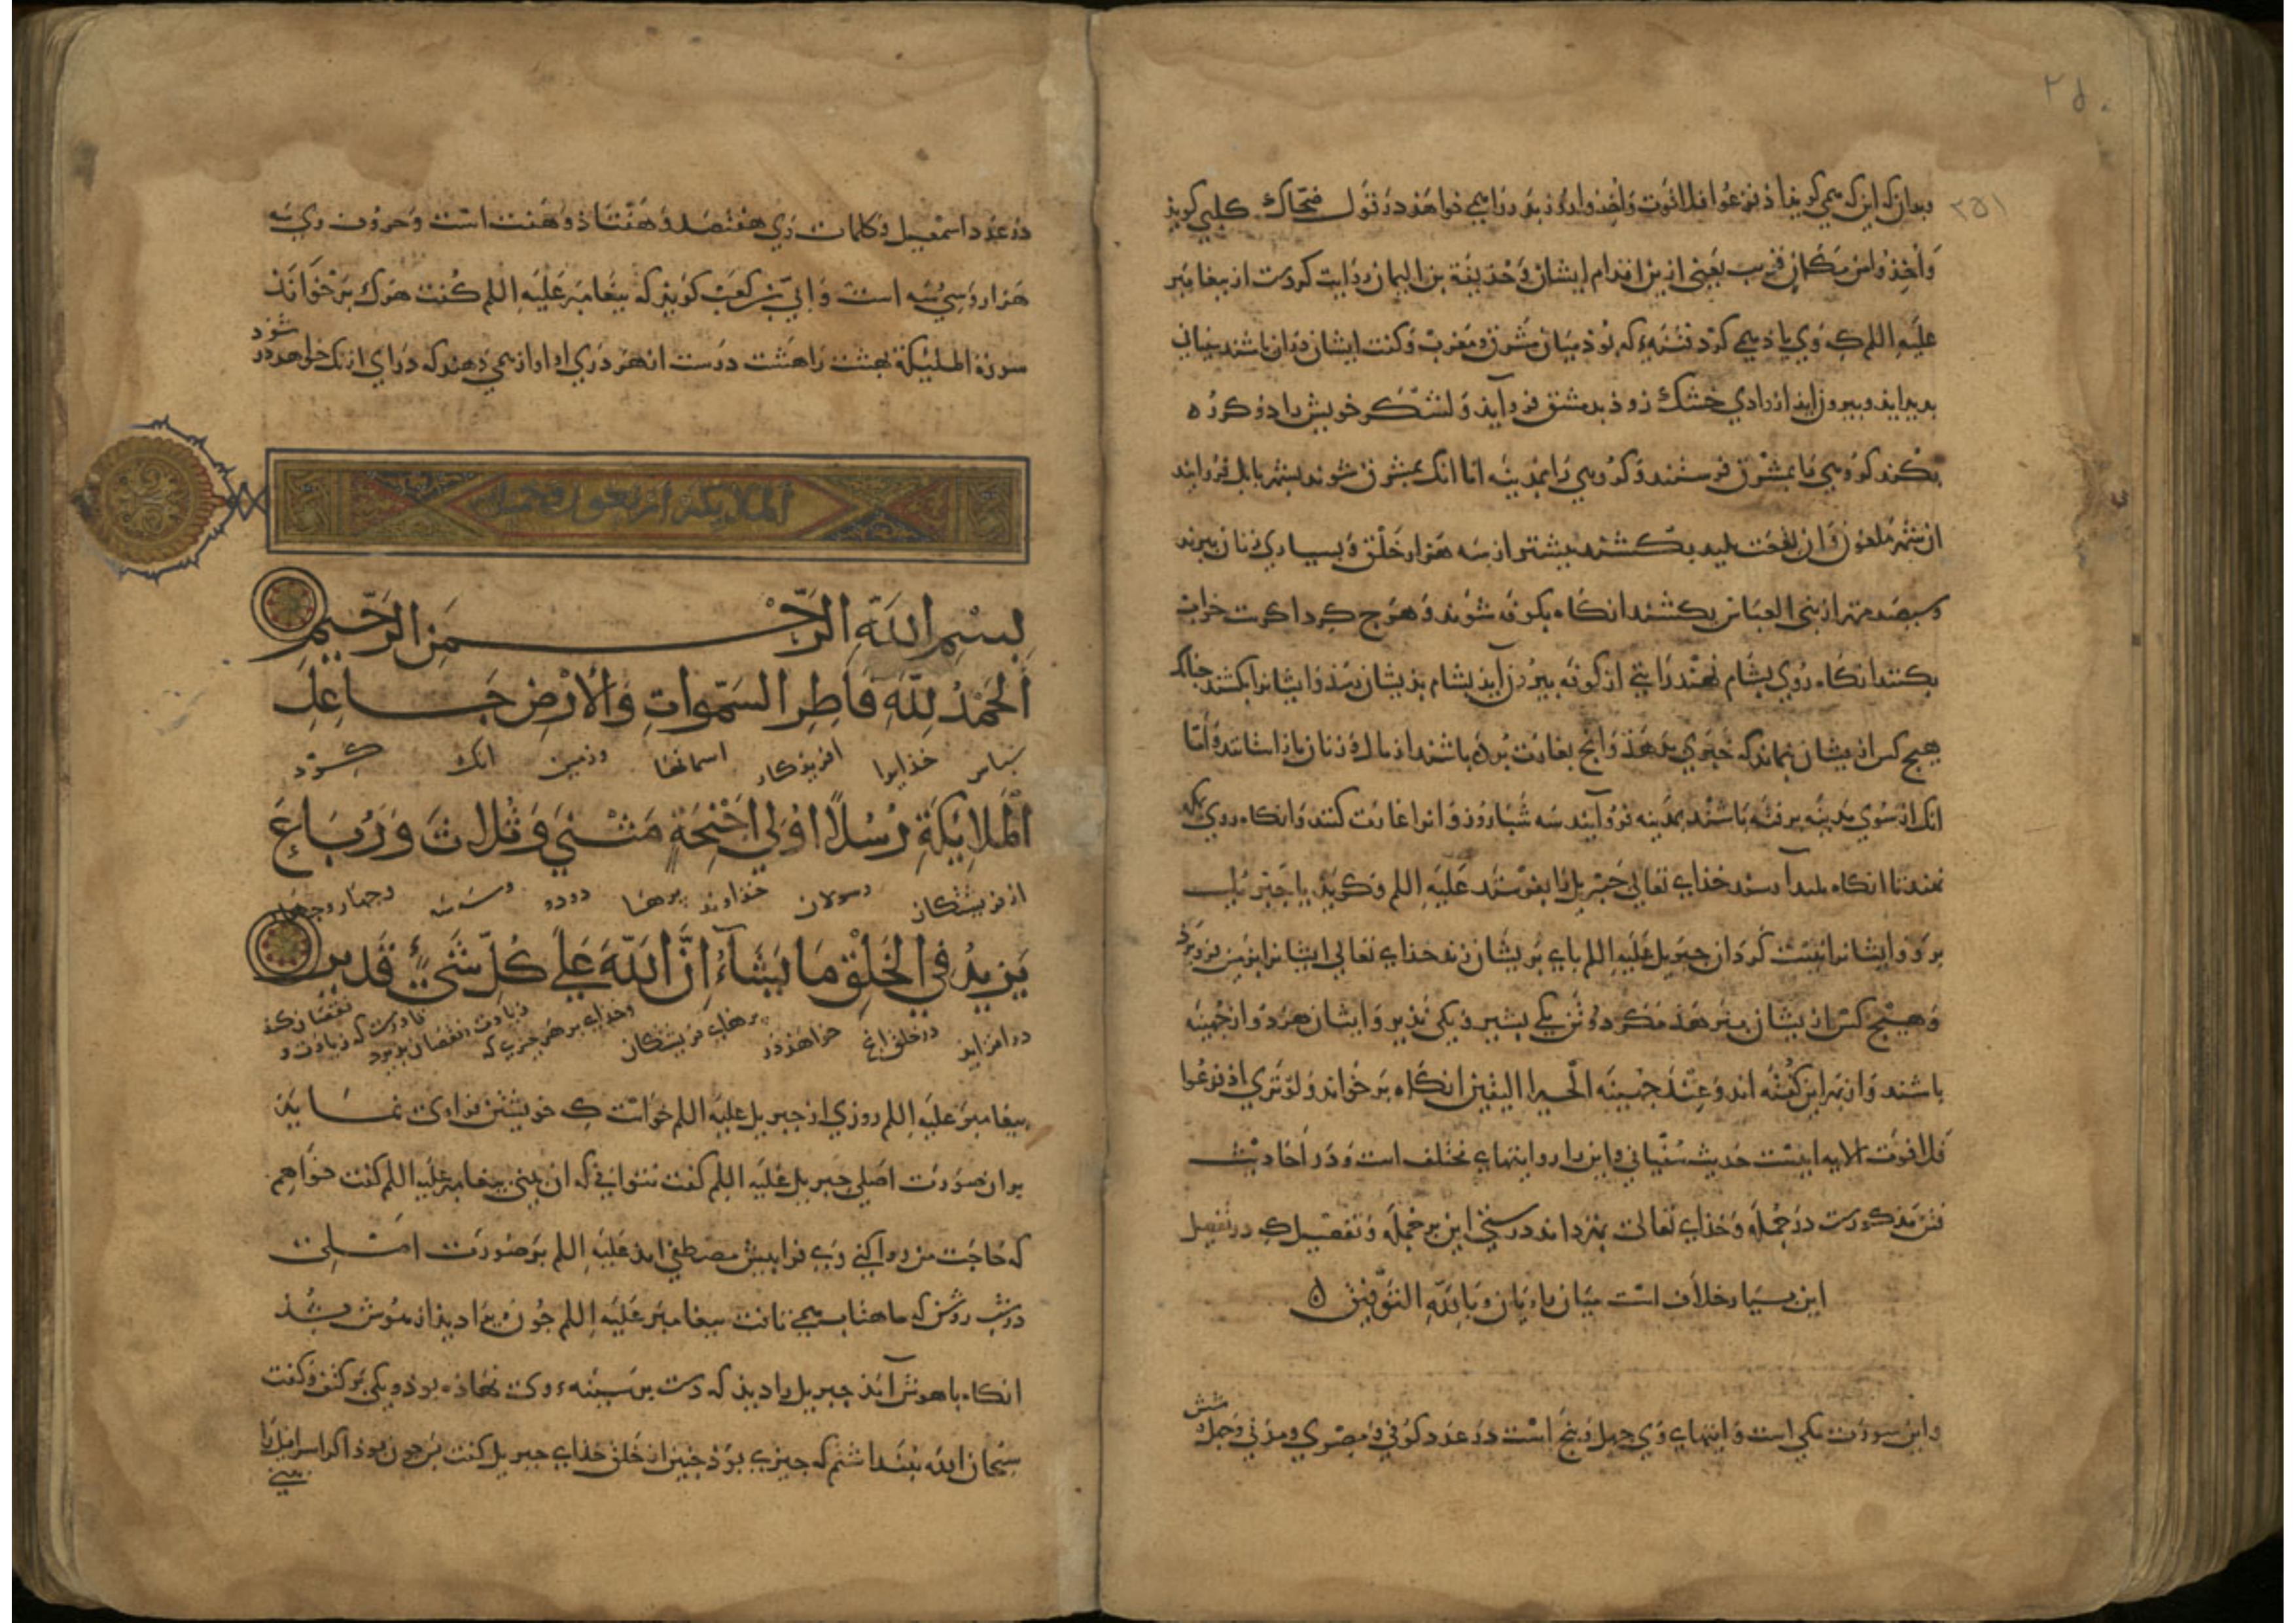 ۲۵۰
۲۵۱
و بدان که این که همی گوید اذ فزعوا فلا فوت و اخذوا در قول ضحاک کلبی گوید
و اخذوا من مکان قریب یعنی از زیر اقدام ایشان و حذیفة بن الیمان روایت کردست از پیغامبر
علیه اللم که وی یاد همی کرد فتنهء که بود میان مشرق و مغرب و گفت ایشان دران باشند سفیانی
بریشان بیرون آید از وادی خشک زود بدمشق فروآید و لشکر خویش را دو گروه
بکند گروهی را بمشرق فرستند و گروهی را بمدینه اما انک بمشرق شوند بشهر بابل فروایند
ان شهر ملعون و ان بقعت پلید بکشند بیشتر از سه هزار خلق و بسیاری زنان ببرند
و سیصد مهتر از بنی العباس بکشند انگاه بکوفه شوند و هرچ گرداگرست خراب
بکنند انگاه روی بشام نهند از کوفه بیرون آید بشام بذیشان رسد و ایشانرا بکشند چنانک
هیچ کس ازیشان نماند که خبری بدهذ و انچ بغارت برده باشند از مال و زنان باز استانند و اما
انک از سوی مدینه برفته باشند بمدینه فروآیند سه شباروز و انرا غارت کنند و انگاه روی بمکه
نهند تا انگاه خذای تعالی جبریل را بفرستد علیه اللم و گوید یا جبریل
برو و ایشانرا نیست گردان جبریل علیه اللم پای بریشان زند خذای تعالی ایشانرا بزمین فرو برد
و هیچ کس ازیشان نرهد مگر دو تن یکی بشیر و یکی نذیر و ایشان هردو از جهینه
باشند و از بهر این گفته اند و عند جهینه الخبر الیقین انگاه برخواند و لو تری اذ فزعوا
فلا فوت الایه اینست حدیث سفیانی و این را روایتهای مختلف است و در احادیث
فتن مذکورست در جمله و خذای تعالی بهتر داند درستی این بر جمله و تفصیل که در تفصیل
این بسیار خلاف است میان راویان و بالله التوفیق
و این سورت مکی است و ایتهای وی چهل و پنج است در عدد کوفی و مصری و مدنی و چهل
شش
در عدد اسمعیل و کلمات وی هفتصد و هفتاذ و هفت است و حروف وی سه
هزار و سی و سه است و ابی بن کعب گویذ که پیغامبر علیه اللم گفت هرک برخواند
سورة الملیکة بهشت را هشت درست از هر دری او را آواز همی دهند که درآی از نک خواهد در
شوذ
الملائکة اربعون و خمس
بِسْمِ اللَّهِ الرَّحْمَنِ الرَّحِيمِ
اَلْحَمْدُ لِلَّهِ فَاطِرِ السَّمَوَاتِ وَالْأَرْضِ جَاعِلِ
سپاس خذایرا افریذکار اسمانها و زمین انک کرد
الْمَلَائِكَةِ رُسُلًا أُولِي أَجْنِحَةٍ مَثْنَى وَثُلَاثَ وَرُبَاعَ
از فریشتکان رسولان خذاوند پرها دودو و سه سه و چهار و چهار
يَزِيدُ فِي الْخَلْقِ مَا يَشَاءُ إِنَّ اللَّهَ عَلَى كُلِّ شَيْءٍ قَدِيرٌ
در افزاید در خلق انچ خواهذ در پرهای فریشتکان و خذای بر هر چیزی که زیادت و نقصان پذیرد قادرست که زیادت و نقصان کند
پیغامبر علیه اللم روزی از جبریل علیه اللم خواست که خویشتن فرا وی نماید
بران صورت اصلی جبریل علیه اللم گفت نتوانی که ان بینی پیغامبر علیه اللم گفت خواهم
که حاجت من روا کنی وی فرا پیش مصطفی امذ علیه اللم بر صورت اصلی
در شب روشن که ماهتاب همی تافت پیغامبر علیه اللم چون ویرا دیذ از هوش بشذ
انگاه باهوش آمذ جبریل را دیذ که دست بر سینهء وی نهاذه بوذ و یکی بر کتف و گفت
سبحان الله نپنداشتم که چیزی بوذ چنین از خلق خذای جبریل گفت پس چون بوذ اگر اسرافیل را
بینی